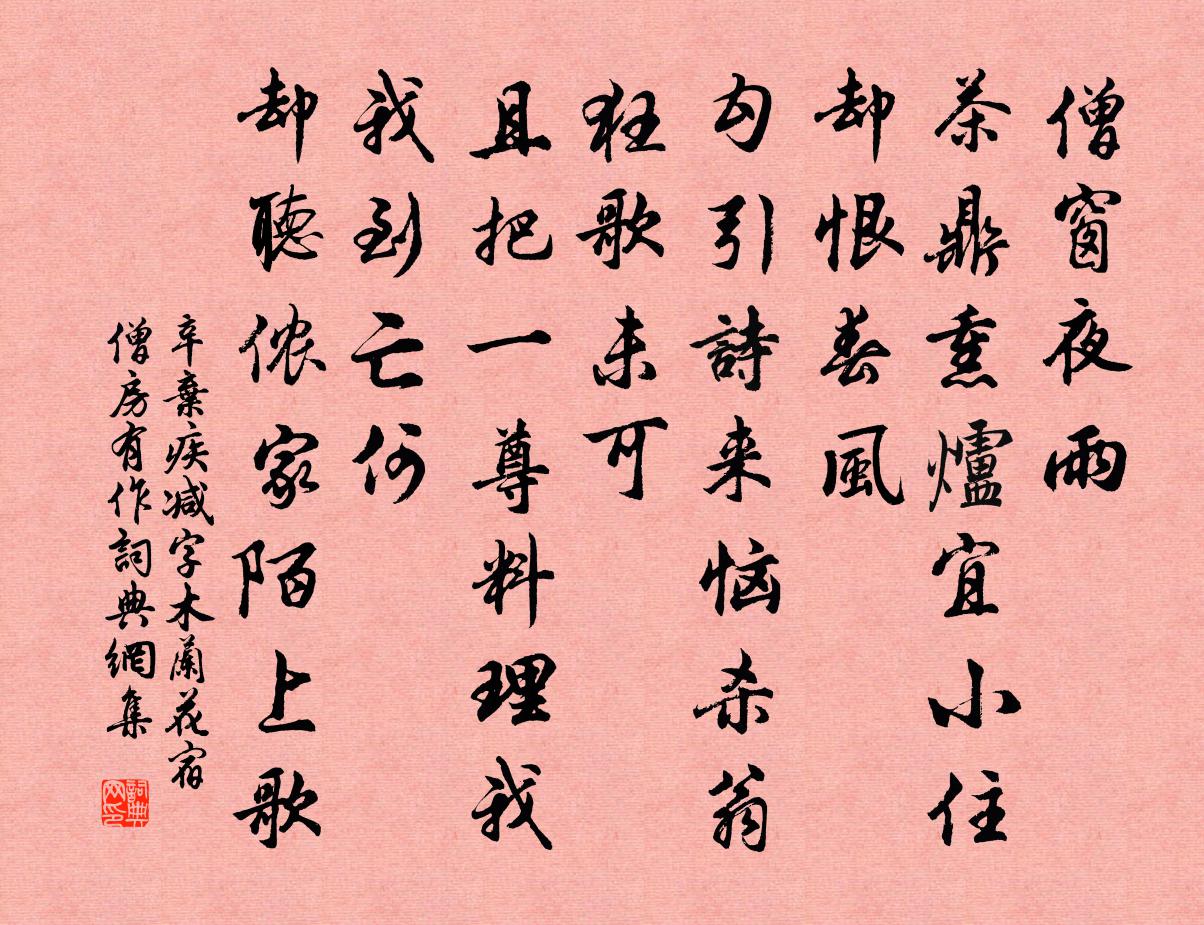 僧窗夜雨
茶鼎熏爐宜小住
却恨春風
勾引詩来恼杀翁
狂歌未可
且把一尊料理我
我到亡何
却聽侬家陌上歌
辛棄疾减字木蘭花宿
僧房有作詞典網集
詞典
网印